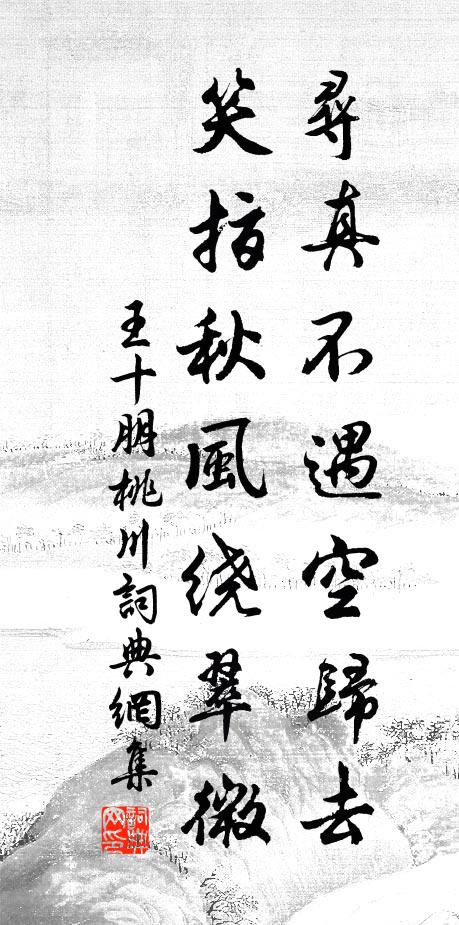 尋真不遇空歸去
笑指秋風绕翠微
王十朋桃川詞典網集